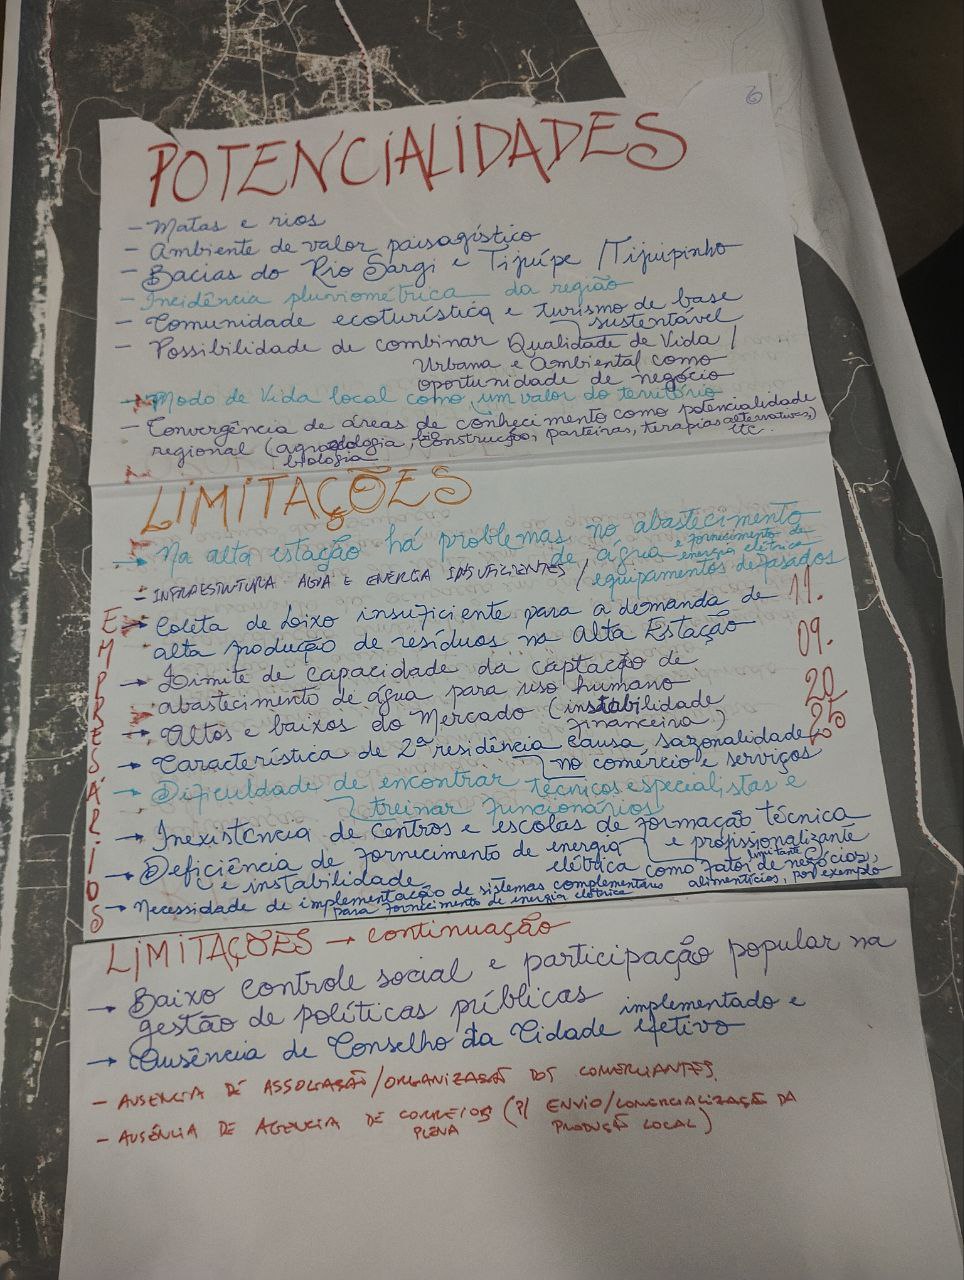 6
POTENCIALIDADES
- Matas e rios
- Ambiente de valor paisagístico
- Bacias do Rio Sargi e Tijuípe / Tijuipinho
- Incidência pluviométrica da região
- Comunidade ecoturística e turismo de base
sustentável
- Possibilidade de combinar Qualidade de Vida /
Urbana e Ambiental como
oportunidade de negócio
→ Modo de Vida local como um valor do território
- Convergência de áreas de conhecimento como potencialidade
regional (agroecologia, bioconstrução, parteiras, terapias alternativas,
biologia etc.
LIMITAÇÕES
→ Na alta estação há problemas no abastecimento
de água e fornecimento de
energia elétrica
- INFRAESTRUTURA ÁGUA E ENERGIA INSUFICIENTES / equipamentos defasados
→ Coleta de Lixo insuficiente para a demanda de
alta produção de resíduos na Alta Estação
→ Limite de capacidade da captação de
abastecimento de água para uso humano
→ Altos e baixos do Mercado (instabilidade
financeira)
→ Característica de 2ª residência causa sazonalidade
no comércio e serviços
→ Dificuldade de encontrar técnicos especialistas e
treinar funcionários
→ Inexistência de centros e escolas de formação técnica
e profissionalizante
→ Deficiência de fornecimento de energia
e instabilidade elétrica como fator limitante de negócios,
alimentícios, por exemplo
→ Necessidade de implementação de sistemas complementares
para fornecimento de energia elétrica
EMPRESÁRIOS
11.
09.
20
25
LIMITAÇÕES → continuação
→ Baixo controle social e participação popular na
gestão de políticas públicas
→ Ausência de Conselho da Cidade implementado e
efetivo
- AUSENCIA DE ASSOCIAÇÃO/ORGANIZAÇÃO DOS COMERCIANTES.
- AUSÊNCIA DE AGENCIA DE CORREIOS (P/ ENVIO/COMERCIALIZAÇÃO DA
PLENA PRODUÇÃO LOCAL)